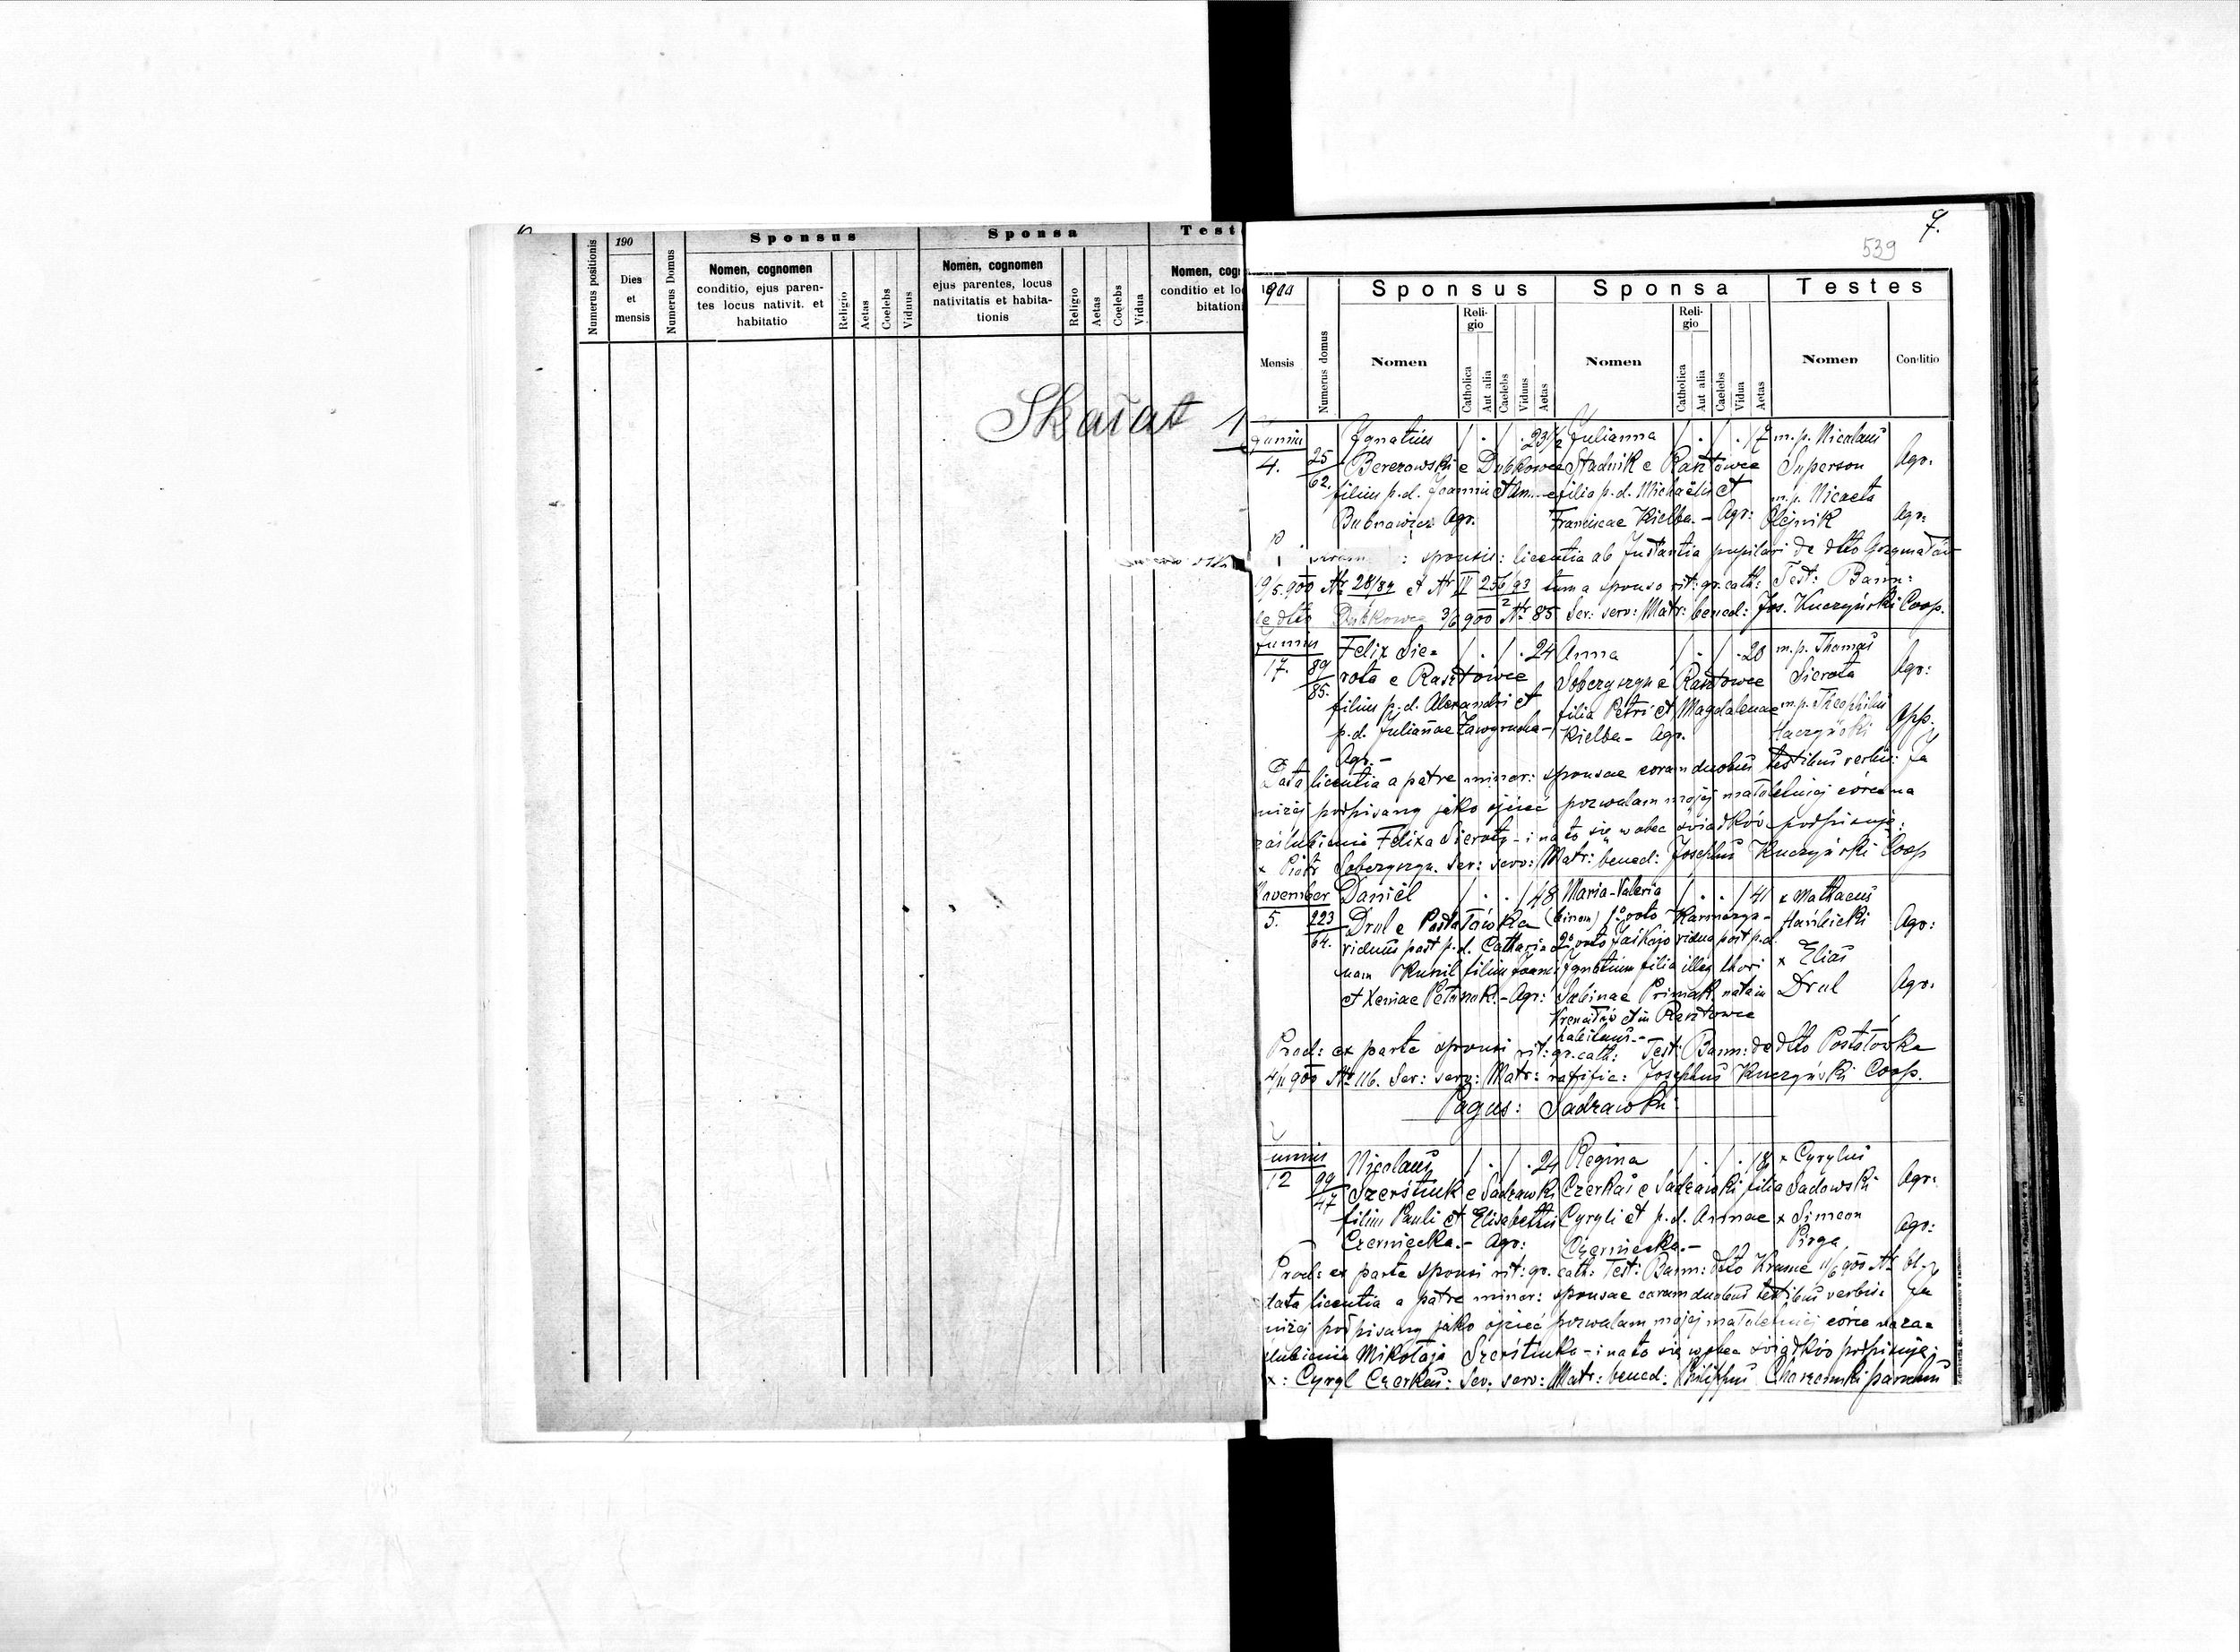 190
Sponsus
Sponsa
Test
Numerus positionis
Dies et mensis
Numerus Domus
Nomen, cognomen
conditio, ejus paren-
tes locus nativit. et
habitatio
Religio
Aetas
Coelebs
Viduus
Nomen, cognomen
ejus parentes, locus
nativitatis et habita-
tionis
Religio
Aetas
Coelebs
Vidua
Nomen, cog
conditio et lo
bitation
Skałat 1
7.
539
1900
Sponsus
Sponsa
Testes
Mensis
Numerus domus
Nomen
Reli-
gio
Catholica
Aut alia
Caelebs
Viduus
Aetas
Nomen
Reli-
gio
Catholica
Aut alia
Caelebs
Vidua
Aetas
Nomen
Conditio
Junius Ignatius / . / . 23 1/2 Julianna / . / . 17 m.p. Nicolaus
4. 25/62. Berezowski e Dubkowce Stadnik e Rasztowce Superson Agr:
filius p.d. Joannis et filia p.d. Michaëlis et m.p.
Bubnowicz Agr. Franciscae Kielba. - Agr: Olejnik Agr:
sponsis: licentia ab Instantia pupilari de dtto Grzymałów
19/5 900 Nr 28/84 et Nr IV 256/93 tum a sponso rit: gr. cath: Test: Bann:
de dtto Dubkowce 3/6 900 Nr 85 Ser: serv: Matr: bened: Jos. Kuczyński Coop.
Junius Felix Sie= / . / . 24 Anna / . / . 20 m.p. Thomas
17. 89/85. rota e Rasztowce e Rasztowce Sierota Agr:
filius p.d. Alexandri et filia Petri et Magdalenae m.p. Theophilus
p.d. Juliannae Kielba - Agr.
Agr. -
Data licentia a patre minor: sponsae coram duobus testibus verbis: Ja
niżej podpisany jako ojciec pozwalam mojej małoletniej córce na
zaślubienie Felixa Sieroty - i na to się wobec świadków podpisuję:
x Piotr Ser: serv: Matr: bened: Josephus Kuczyński Coop
November Daniël / . . / 48 Maria-Valeria / . . / 41 x Mathaeus
5. 223/64. Drul e Postołówka (binom) 1º voto Agr:
viduus post p.d. Catharin 2º voto vidua post p.d. x Elias
nam filius Joannis Ignatium filia illeg. thori Drul Agr:
et Xeniae Agr: Sabinae Primak nata in
et in Rasztowce
Prod: ex parte sponsi rit: gr. cath: Test: Bann: de dtto Postołówka
4/11 900 Nr 116. Ser: serv: Matr: ratific: Josephus Kuczyński Coop.
Pagus: Sadzawki
Junius Nicolaus / . / . 24 Regina / . / . 18 x Cyrylus
12 99/47 Szerśtiuk e Sadzawki Czerkas e Sadzawki filia Sadowski Agr:
filius Pauli et Elisabethis Cyryli et p.d. Annae x Simeon
Czerniecka. - Agr: Czerniecka. - Pirga Agr:
Prod: ex parte sponsi rit: gr. cath: Test: Bann: dtto Krasne 11/6 900 Nr
data licentia a patre minor: sponsae coram duobus testibus verbis: Ja
niżej podpisany jako ojciec pozwalam mojej małoletniej córce na za=
ślubienie Mikołaja Szerśtiuka - i na to się wobec świadków podpisuję:
x: Cyryl Czerkas: Ser: serv: Matr: bened: Philippus parochus